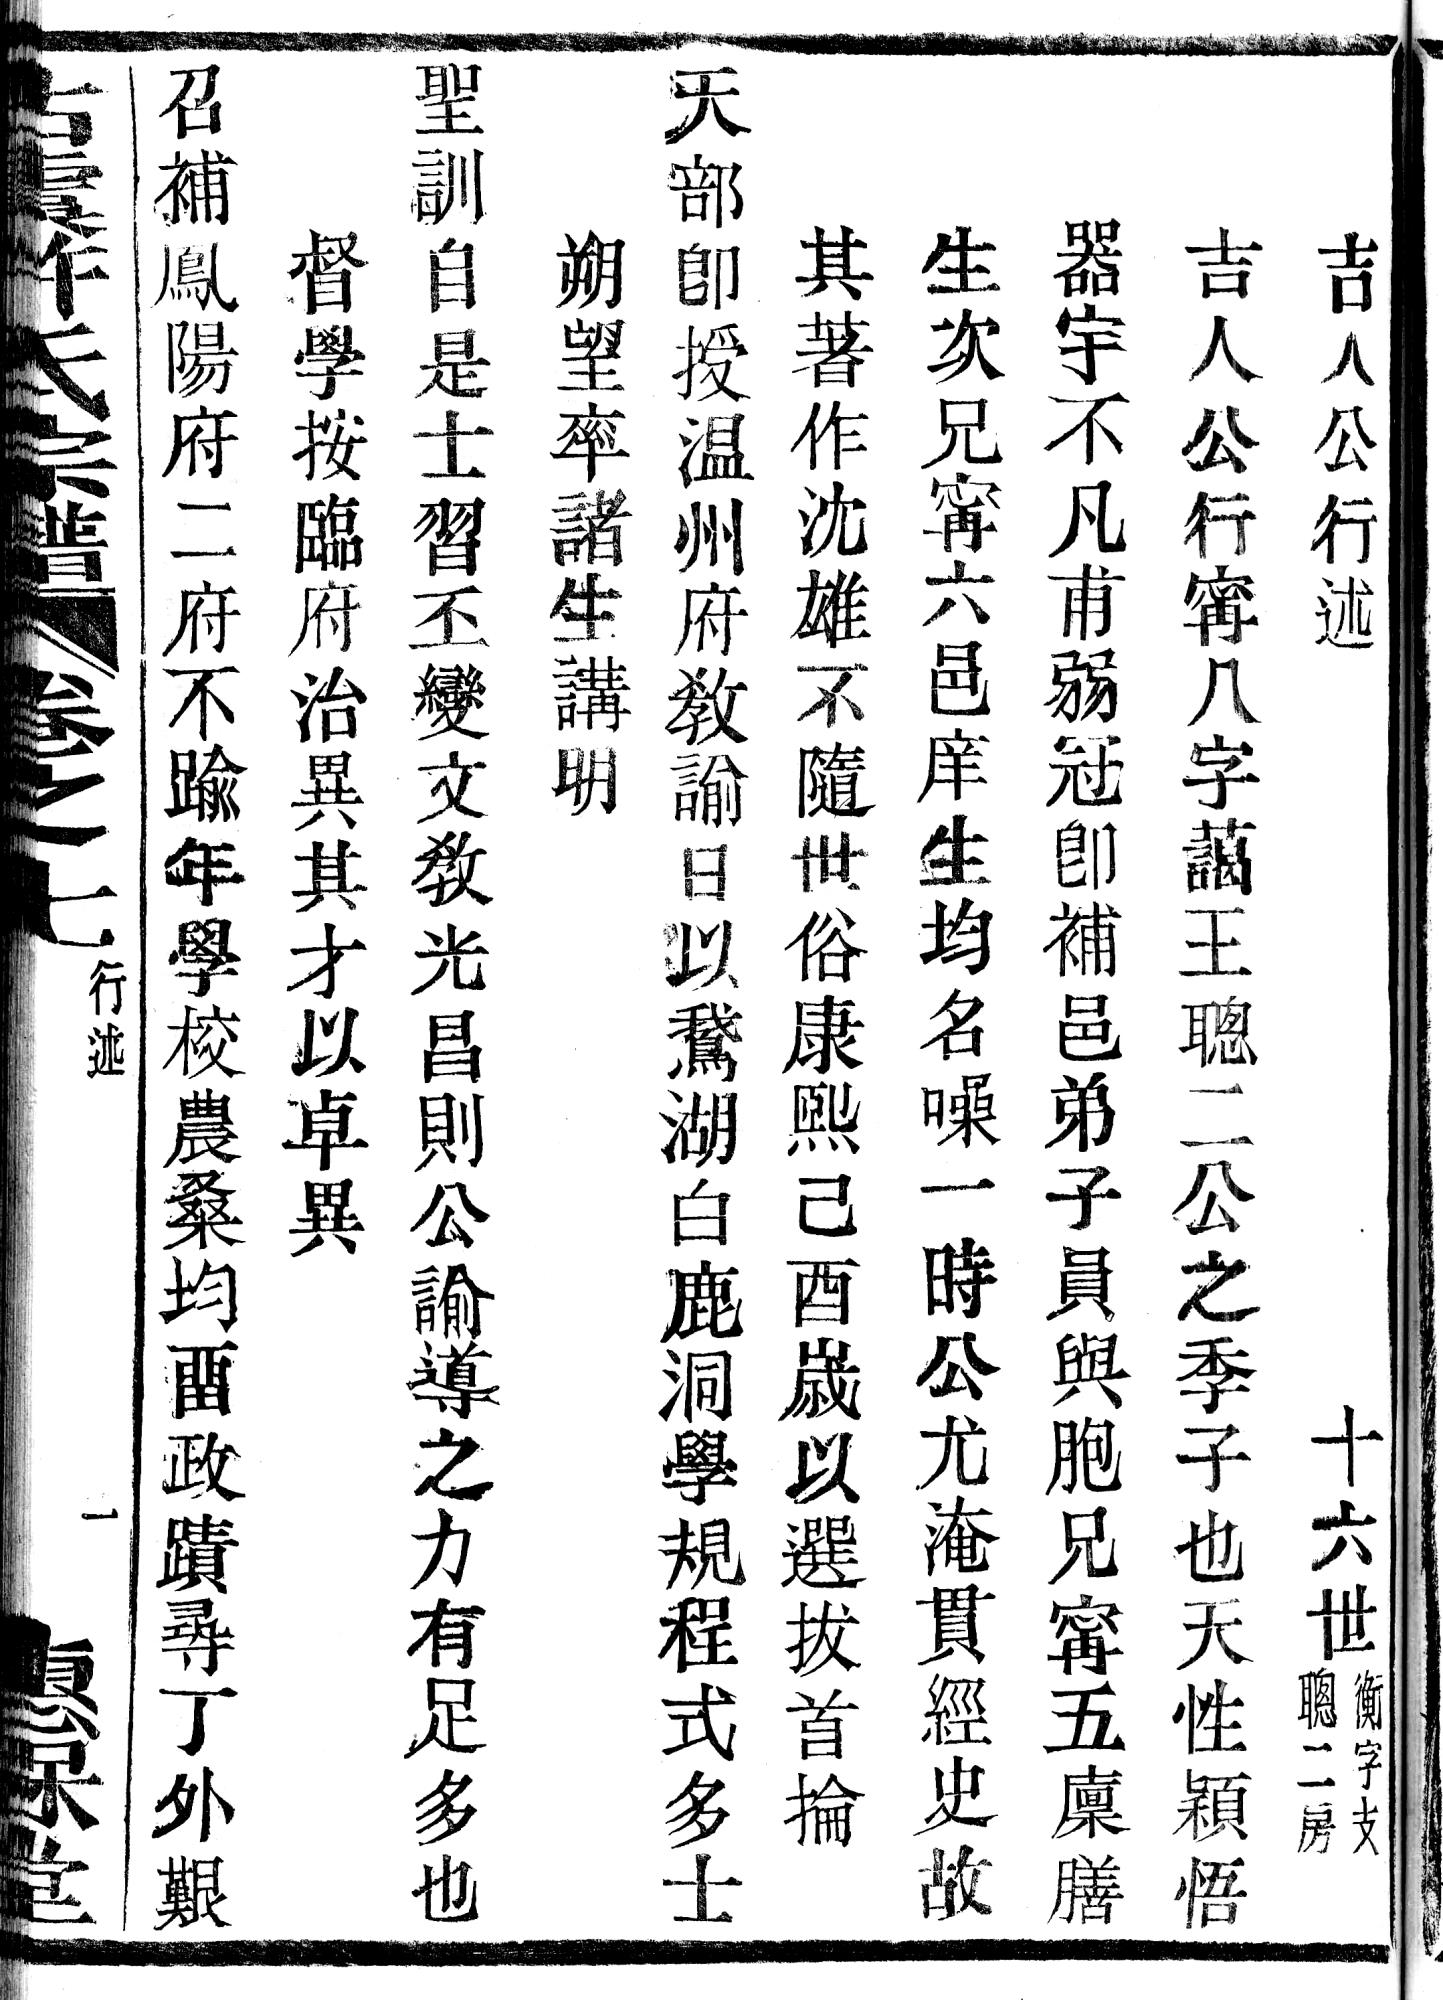 吉人公行述　十六世衡字支聰二房
吉人公行甯八字藹王聰二公之季子也天性穎悟
器宇不凡甫弱冠卽補邑弟子員與胞兄甯五廩膳
生次兄甯六邑庠生均名噪一時公尤淹貫經史故
其著作沈雄不隨世俗康熙己酉歲以選拔首掄
天部卽授温州府敎諭日以鵞湖白鹿洞學規程式多士
朔望率諸生講明
聖訓自是士習丕變文敎光昌則公諭導之力有足多也
督學按臨府治異其才以卓異
召補鳳陽府二府不踰年學校農桑均畱政蹟尋丁外艱
氏宗譜　卷之七　行述　一　惠保堂